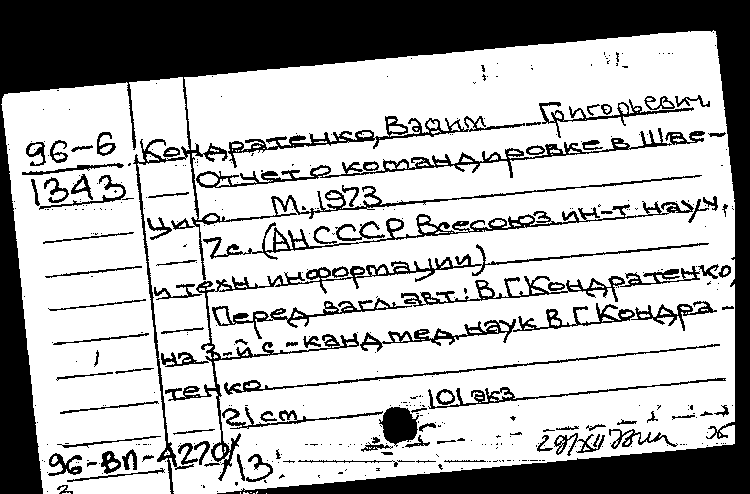 96-6
1343
Кондратенко, Вадим Григорьевич.
Отчет о командировке в Шве-
цию. М., 1973
7с. (АН СССР. Всесоюз. ин-т науч.
и техн. информации).
Перед загл. авт.: В.Г. Кондратенко,
на 3-й с. - канд. мед. наук В.Г. Кондра-
тенко.
21 cm. 101 экз
96-ВП-4270/13